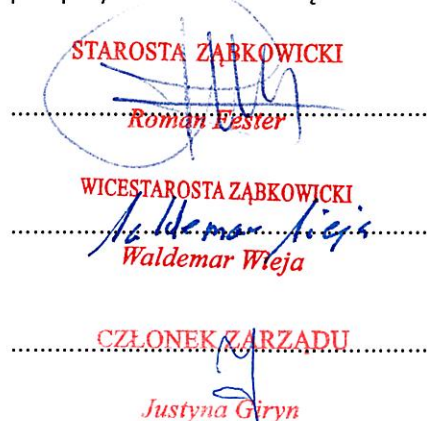 STAROSTA ZĄBKOWICKI
Roman Fester
WICESTAROSTA ZĄBKOWICKI
Waldemar Wieja
Waldemar Wieja
CZŁONEK ZARZĄDU
Justyna Giryn